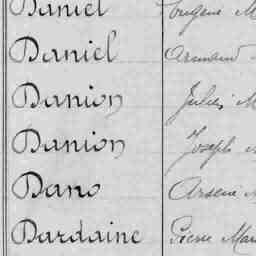 Daniel Eugène M
Daniel Armand
Danion Jules M
Danion Joseph M
Dano Arsène M
Dardaine Pierre Mar